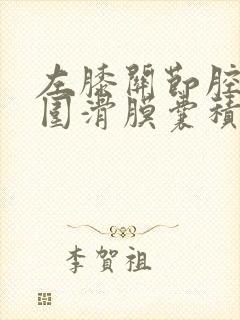 左膝關節腔
圍滑膜囊積
李賀祖